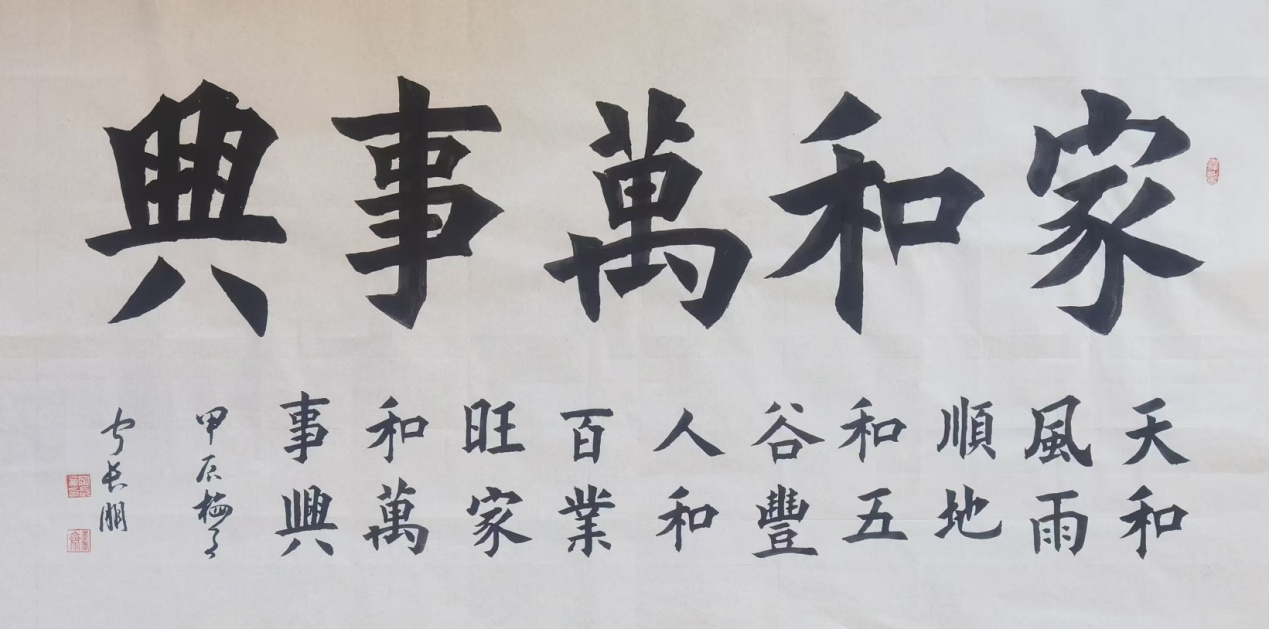 家和萬事興
天和
風雨
順地
和五
谷豐
人和
百業
旺家
和萬
事興
甲辰梅月
宁長朋